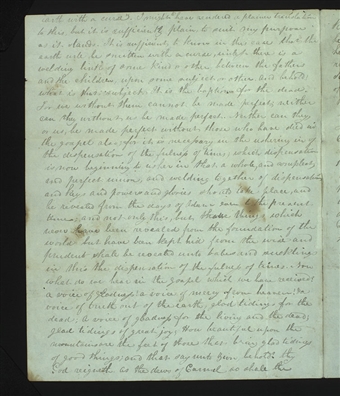 earth with a curse. I might have rendered a plainer translation
to this but it is sufficiently plain to suit my purpose
as it stands. It is sufficient to know in this case that the
earth will be smitten with a curse, unless there is a
welding link of some kind or other between the fathers
and the children, upon some subject or other and behold,
what is that subject. It is the baptism for the dead,
For we without them cannot be made perfect, neither
can they without us be made perfect. Neither can they
or us, be made perfect without those who have died in
the gospel also; for it is necessary in the ushering in of
the dispensation of the fulness of times; which dispensation
is now beginning to usher in that a whole, and complete,
and perfect union, and welding together of dispensations
and keys and powers and glories should take place, and
be revealed from the days of Adam even to the present
time; and not only this, but those things which
never have been revealed from the foundation of the
world but have been kept hid from the wise and
prudent shall be revealed unto babes and sucklings
in this the dispensation of the fulness of times. Now
what do we hear in the gospel which we have received
a voice of gladness; a voice of mercy from heaven; a
voice of truth out of the earth, glad tidings for the
dead: a voice of gladness for the living and the dead;
glad tidings of great joy; How beautiful upon the
mountains are the feet of those that bring glad tidings
of good things; and that say unto Zion behold! thy
God reigneth as the dews of Carmel so shall the